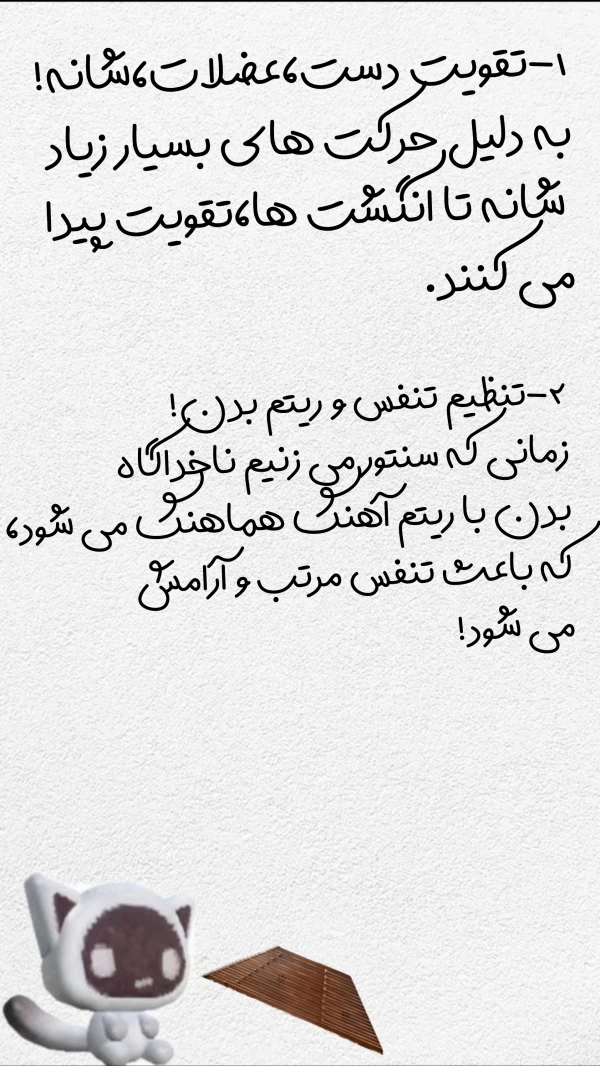 ۱-تقویت دست،عضلات،شانه!
به دلیل حرکت های بسیار زیاد
شانه تا انگشت ها،تقویت پیدا
می کنند.
۲-تنظیم تنفس و ریتم بدن!
زمانی که سنتور می زنیم ناخداگاه
بدن با ریتم آهنگ هماهنگ می شود،
که باعث تنفس مرتب و آرامش
می شود!